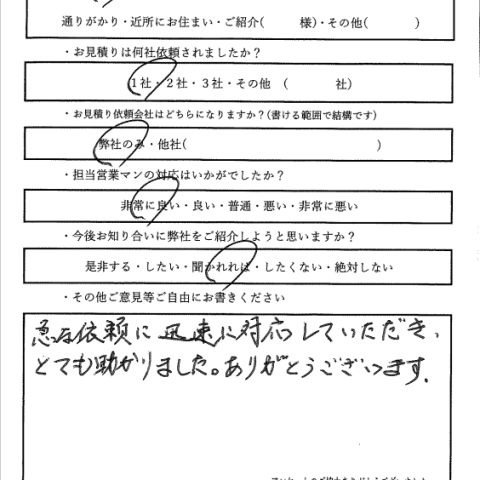 通りがかり・近所にお住まい・ご紹介(　　　様)・その他(　　　　)
・お見積りは何社依頼されましたか？
１社・２社・３社・その他　(　　　　社)
・お見積り依頼会社はどちらになりますか？(書ける範囲で結構です)
弊社のみ・他社(　　　　　　　　　　　　　　　)
・担当営業マンの対応はいかがでしたか？
非常に良い・良い・普通・悪い・非常に悪い
・今後お知り合いに弊社をご紹介しようと思いますか？
是非する・したい・聞かれれば・したくない・絶対しない
・その他ご意見等ご自由にお書きください
急な依頼に迅速に対応していただき、
とても助かりました。ありがとうございます.